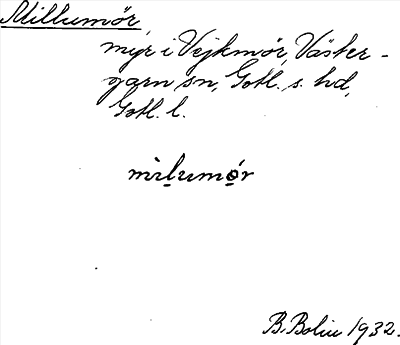 Millumör,
myr i Vejkmör, Väster-
garn sn, Gotl. s. hd,
Gotl. l.
milumọ́r
B. Bolin 1932.